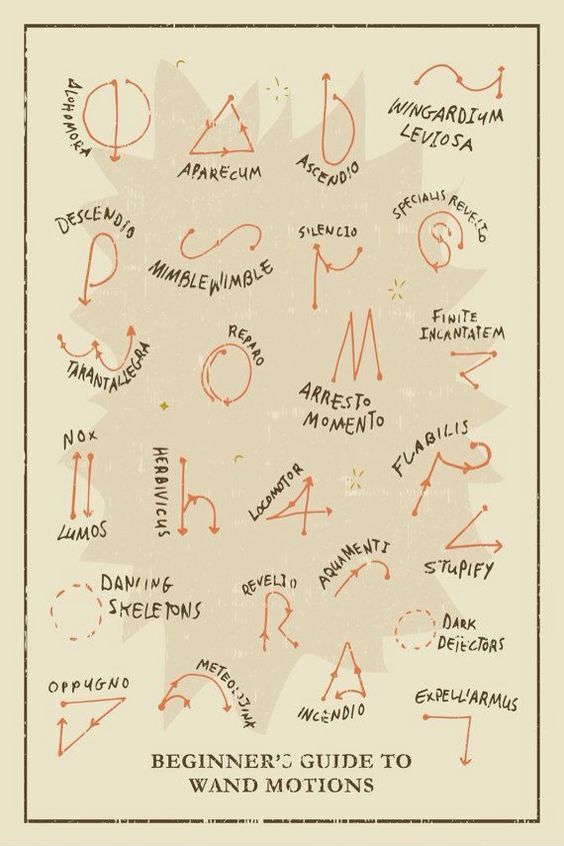 ALOHOMORA
APARECUM
ASCENDIO
WINGARDIUM
LEVIOSA
DESCENDIO
MIMBLEWIMBLE
SILENCIO
SPECIALIS REVELIO
TARANTALLEGRA
REPARO
ARRESTO
MOMENTO
FINITE
INCANTATEM
NOX
LUMOS
HERBIVICUS
LOCOMOTOR
FLABILIS
STUPIFY
DANCING
SKELETONS
REVELIO
AQUAMENTI
DARK
DETECTORS
OPPUGNO
METEOLOJINX
INCENDIO
EXPELL'ARMUS
BEGINNER'S GUIDE TO
WAND MOTIONS